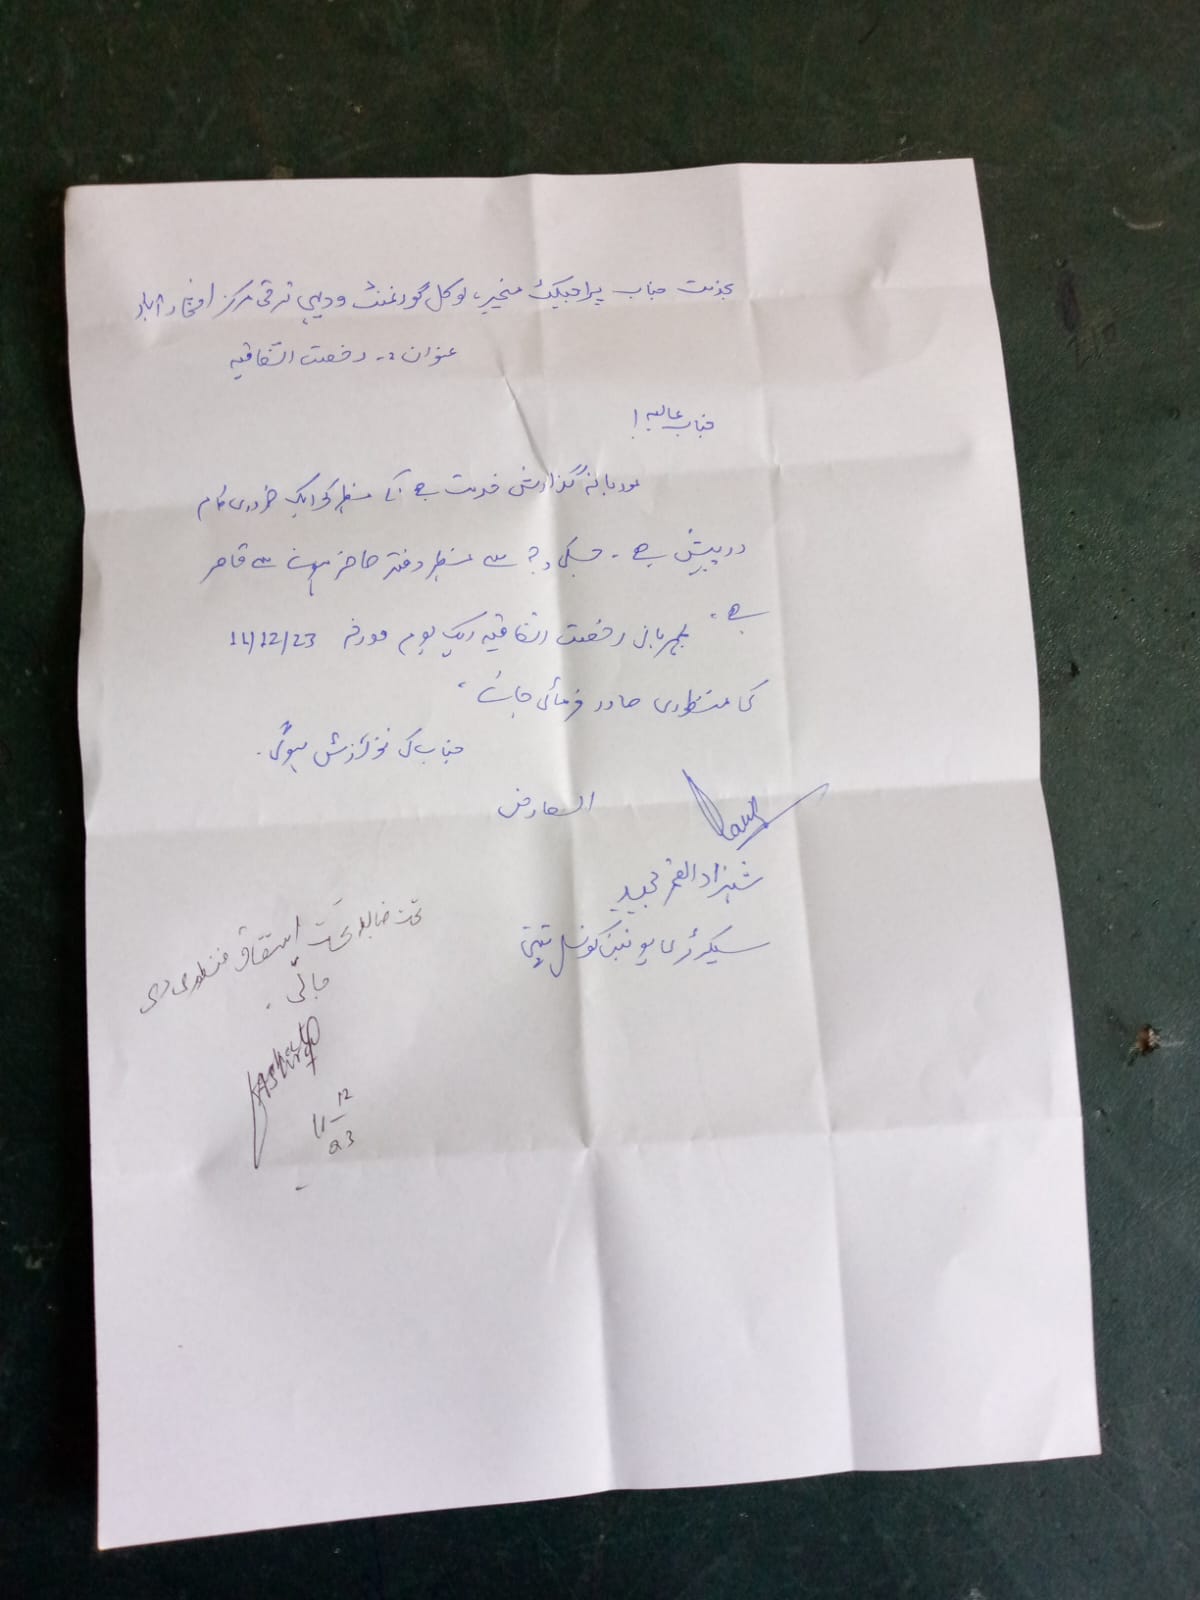 بخدمت جناب پراجیکٹ منیجر، لوکل گورنمنٹ ودیہی ترقی مرکز افتخار آباد
عنوان :۔ رخصت اتفاقیہ
جناب عالیہ!
مودبانہ گذارش خدمت ہے کہ مظہر کو ایک ضروری کام
درپیش ہے۔ جسکی وجہ سے مظہر دفتر حاضر ہونے سے قاصر
ہے، بمہربانی رخصت اتفاقیہ ایک یوم مورخہ 11/12/23
کی منظوری صادر فرمائی جائے،
جناب کی نوازش ہوگی۔
العارض
شہزاد القمر مجید
سیکرٹری یونین کونسل
تحت ضابطہ منظوری دی
جاتی۔
11-12
23